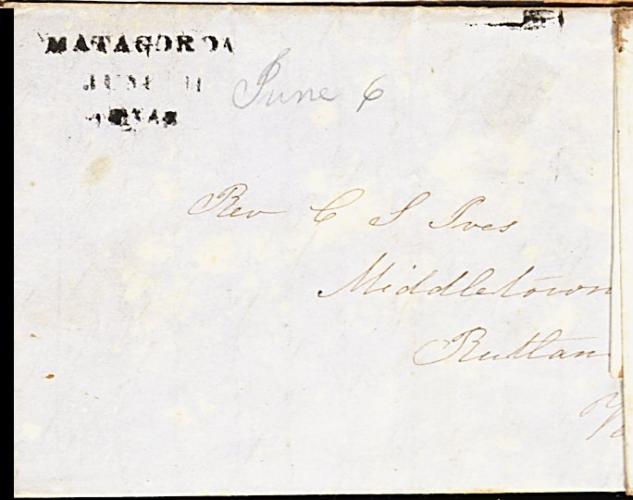 MATAGORDA
JUNE 11
TEXAS
June 6
Rev C S Ives
Middletown
Rutlan